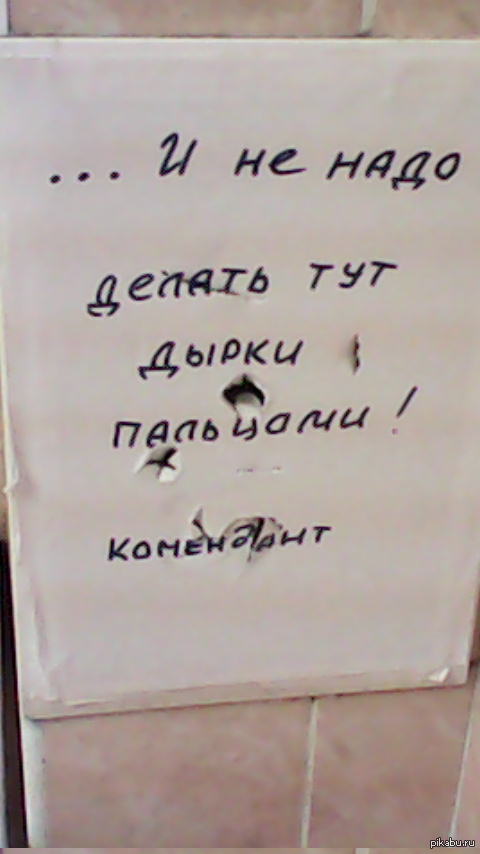 ... И не надо
делать тут
дырки
пальцами!
комендант
pikabu.ru